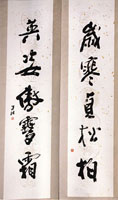 歲寒貞松柏
英姿傲雪霜